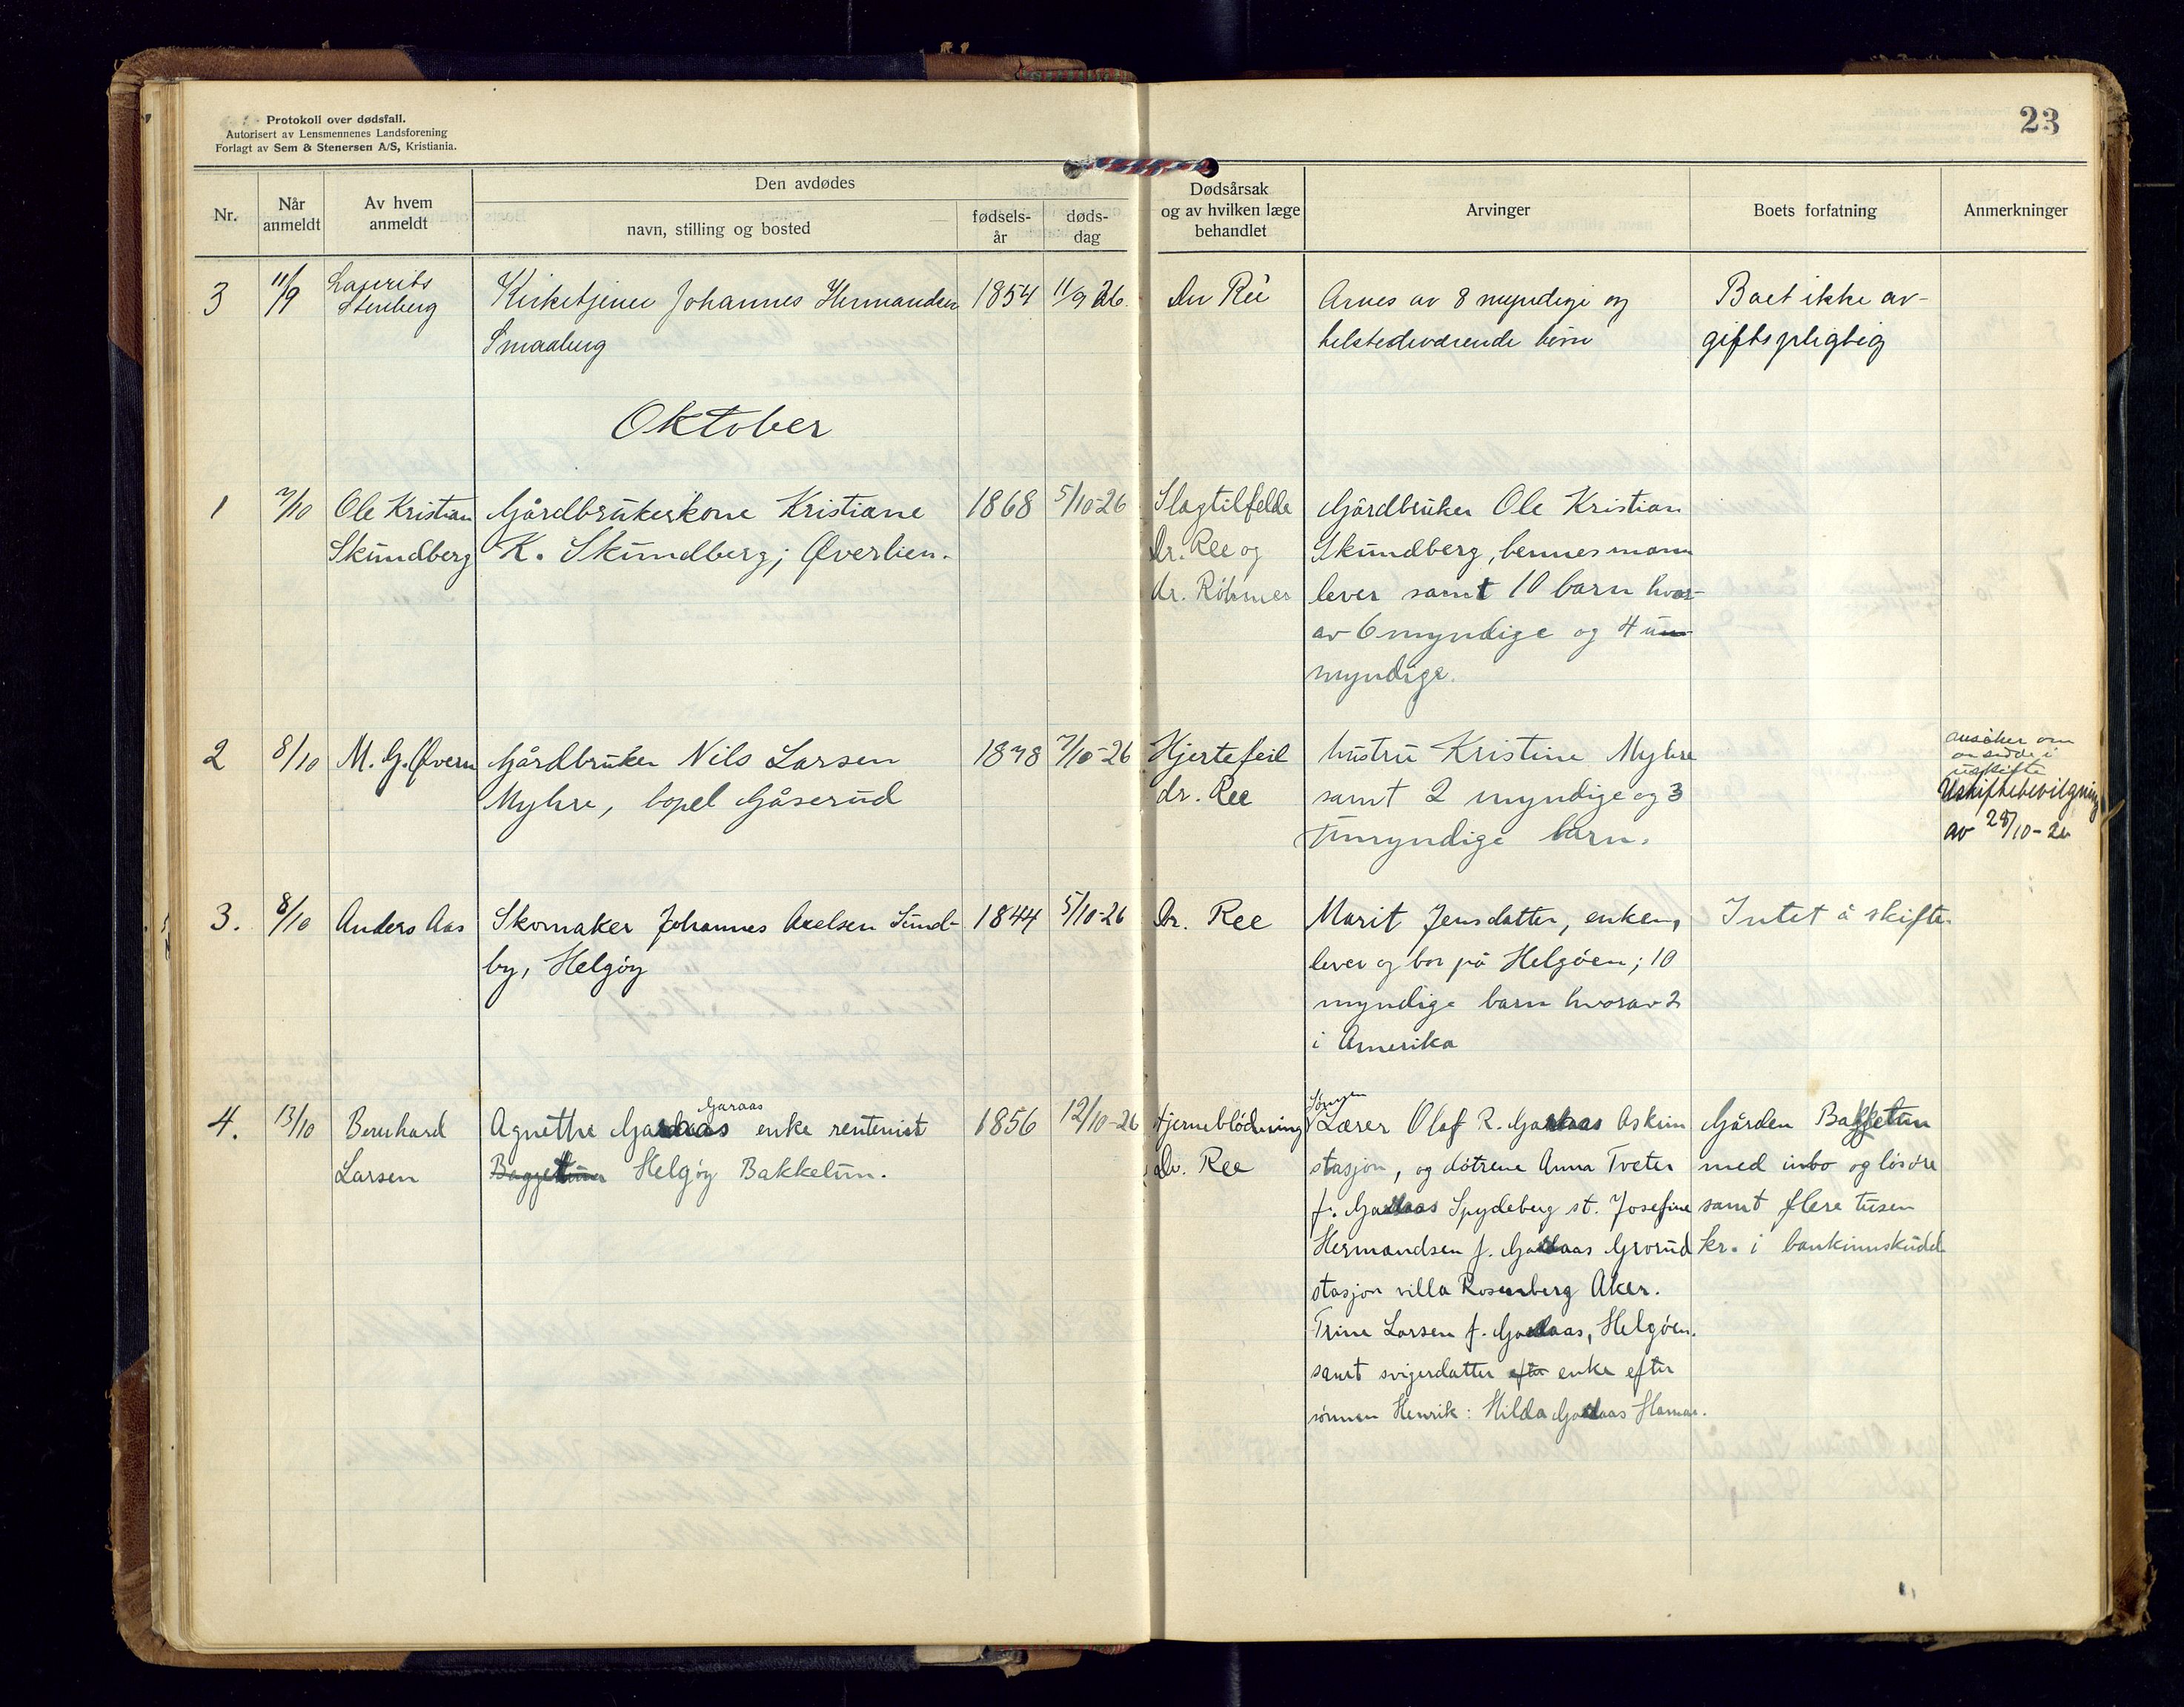 Protokoll over dødsfall.
Autorisert av Lensmennenes Landsforening
Forlagt av Sem & Stenersen A/S, Kristiania.
23
Nr.
Når
anmeldt
Av hvem
anmeldt
Den avdødes
navn, stilling og bosted
fødsels-
år
døds-
dag
Dødsårsak
og av hvilken læge
behandlet
Arvinger
Boets forfatning
Anmerkninger
3
11/9
Laurits
Stenberg
Kirketjener Johannes Hermandsen
Smaaberg
1854
11/9 26.
Dr Ree
Arves av 8 myndige og
tilstedeværende børn
Boet ikke av-
giftspligtig
Oktober
1
7/10
Ole Kristian
Skundberg
Gårdbrukerkone Kristiane
K. Skundberg; Øverlien.
1868
5/10-26
Slagtilfelde
Dr. Ree og
dr. Röhmer
Gårdbruker Ole Kristian
Skundberg, hennes mann
lever samt 10 barn hvor-
av 6 myndige og 4 u-
myndige.
2
8/10
M. G. Øvern
Gårdbruker Nils Larsen
Myhre, bopel Gåserud
1878
7/10-26
Hjertefeil
dr. Ree
hustru Kristine Myhre
samt 2 myndige og 3
umyndige barn.
ansøker om
å sidde i
uskifte
Uskiftebevilgning
av 28/10-26
3.
8/10
Anders Aas
Skomaker Johannes Axelsen Sund-
by, Helgøy
1844
5/10-26
Dr. Ree
Marit Jensdatter, enken,
lever og bor på Helgøen; 10
myndige barn hvorav 2
i Amerika
Intet å skifte.
4.
13/10
Bernhard
Larsen
Garaas
Agnethe Garaas enke rentenist
Baggetun Helgøy Bakketun.
1856
12/10-26
Hjerneblödning
Dr. Ree
Sønnen
Lærer Olaf R. Garaas Askim
stasjon, og døtrene Anna Tveter
f. Garaas Spydeberg st. Josefine
Hermandsen f. Garaas Grorud
stasjon villa Rosenberg Aker.
Trine Larsen f. Garaas, Helgøen.
samt svigerdatter efter enke efter
sønnen Henrik: Hilda Garaas Hamar.
Gården Bakketun
med inbo og løsøre
samt flere tusen
kr. i bankinnskudd